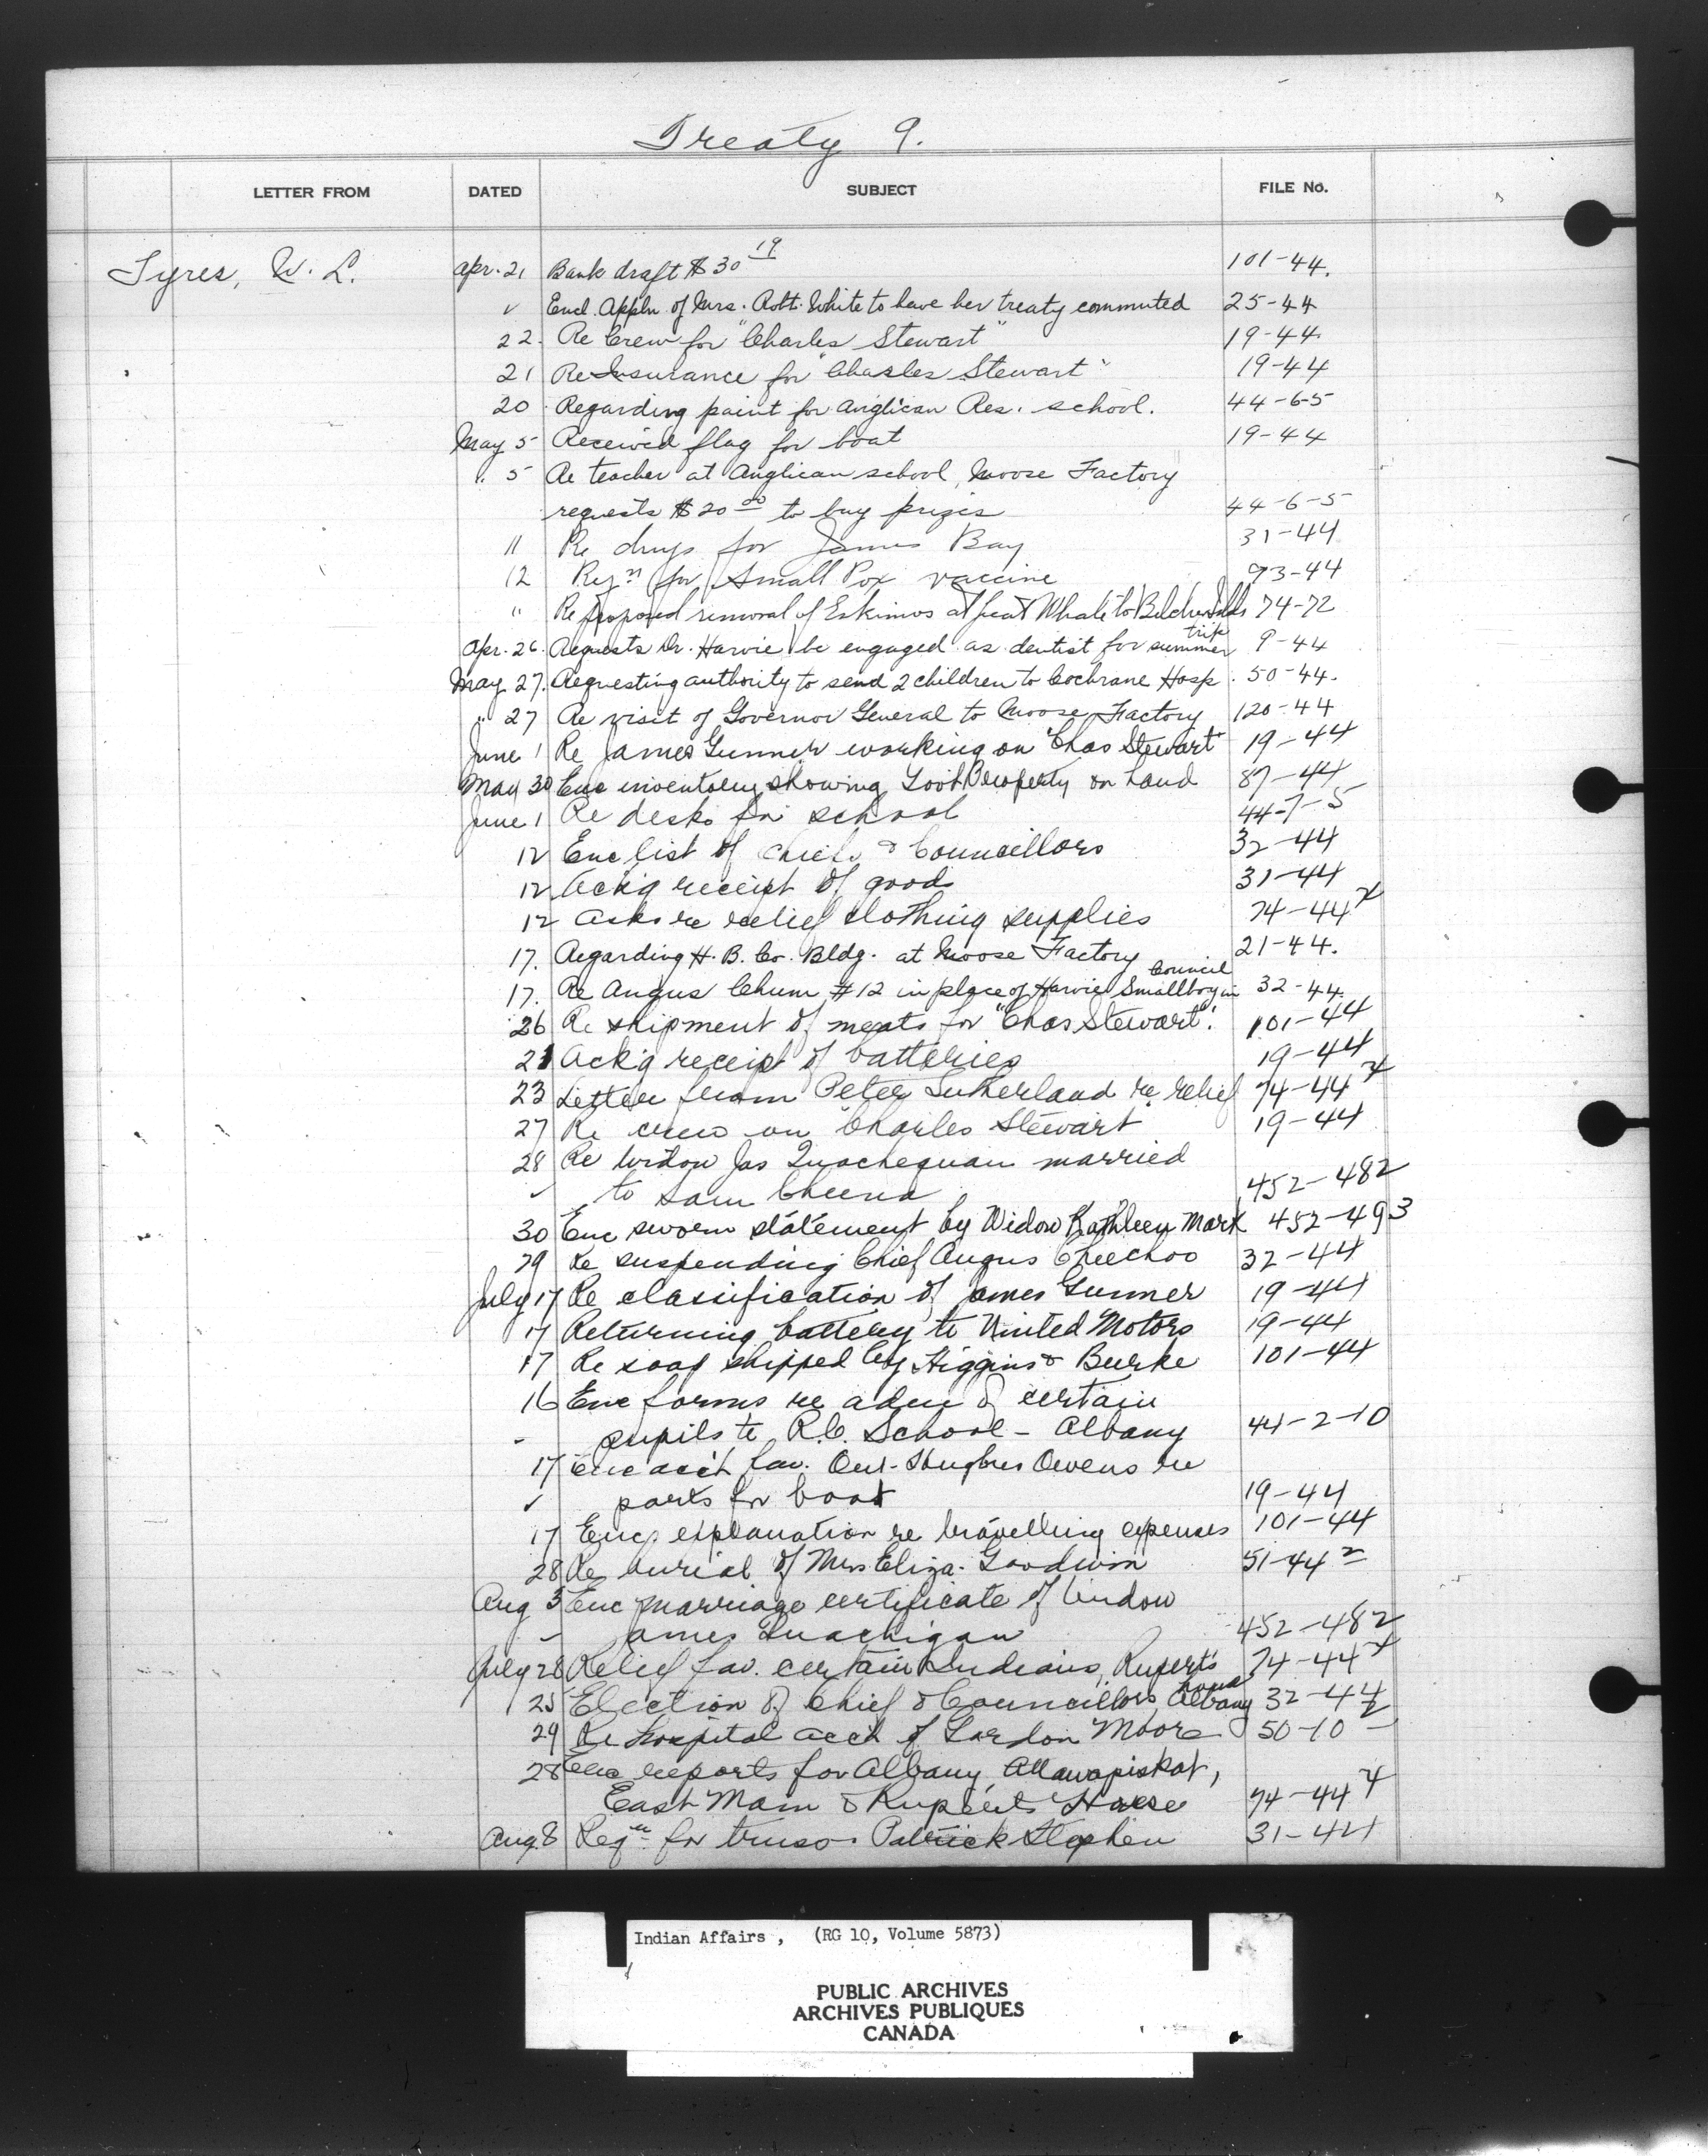 Treaty 9.
LETTER FROM DATED SUBJECT FILE No.
Tyrer, W. L. Apr. 21 Bank draft $30 19 101-44.
✓ Encl. Appln of Mrs. Robt. White to have her treaty commuted 25-44
22. Re Crew for "Charles Stewart" 19-44.
21 Re Insurance for "Charles Stewart" 19-44
20 Regarding paint for Anglican Res. school. 44-6-5
May 5 Received flag for boat 19-44
" 5 Re teacher at Anglican school, Moose Factory
requests $20 00 to buy prizes 44-6-5
11 Re drugs for James Bay 31-44
12 Reqn for Small Pox vaccine 93-44
" Re proposed removal of Eskimos at Great Whale to Belcher Islds 74-72
Apr. 26. Requests Dr. Harvie be engaged as dentist for summer trip 9-44
May 27. Requesting authority to send 2 children to Cochrane Hosp. 50-44.
" 27 Re visit of Governor General to Moose Factory 120-44
June 1 Re James Gunner working on "Chas Stewart" 19-44
May 30 Enc inventory showing Govt Property on hand 87-44
June 1 Re desks for school 44-7-5
12 Enc list of Chiefs & Councillors 32-44
12 Ack'g receipt of goods 31-44
12 Asks re relief clothing supplies 74-44
17. Regarding H. B. Co. Bldg. at Moose Factory 21-44.
17. Re Angus Chum #12 in place of Harvie Smallboy in Council 32-44.
26 Re shipment of meats for "Chas Stewart". 101-44
21 Ack'g receipt of batteries 19-44
23 Letter from Peter Sutherland re relief 74-44
27 Re crew on "Charles Stewart" 19-44
28 Re Widow Jas Quachequan married
✓ to Sam Cheena 452-482
30 Enc sworn statement by Widow Kathleen Mark 452-493
29 Re suspending Chief Angus Cheechoo 32-44
July 17 Re classification of James Gunner 19-44
17 Returning battery to United Motors 19-44
17 Re soap shipped by Higgins & Burke 101-44
16 Enc forms re adm of certain
- pupils to R.C. School - Albany 44-2-10
17 Enc acct fav. Hughes Owens re
✓ parts for boat 19-44
17 Enc, explanation re travelling expenses 101-44
28 Re burial of Mrs Eliza. Goodwin 51-44 2
Aug 3 Enc marriage certificate of Widow
- James Quachigan 452-482
July 28 Relief fav. certain Indians, Rupert's House 74-44
25 Election of Chief & Councillors, Albany 32-44
29 Re hospital acct of Gordon Moore 50-10
28 Enc reports for Albany, Attawapiskat,
East Main & Rupert's House 74-44
Aug. 8 Reqn for truss Patrick Stephen 31-44
Indian Affairs , (RG 10, Volume 5873)
PUBLIC ARCHIVES
ARCHIVES PUBLIQUES
CANADA